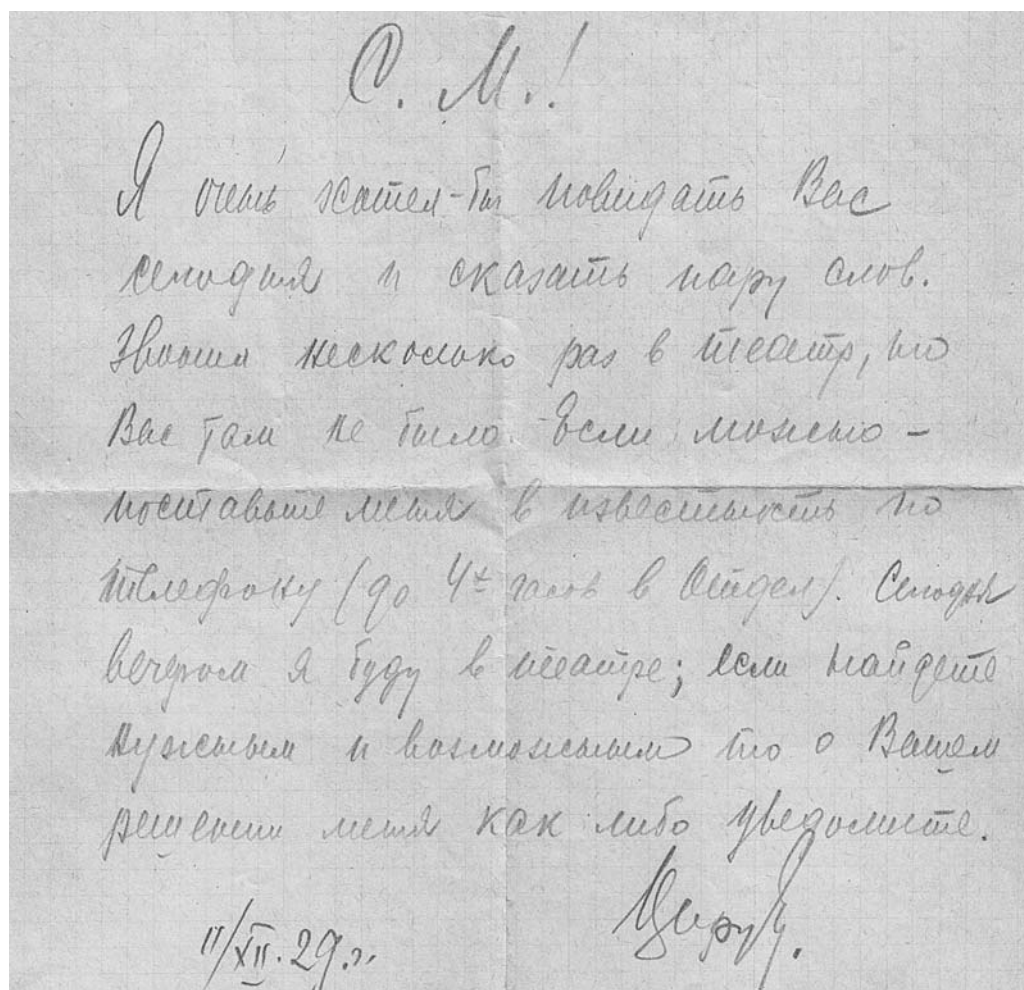 С. М.!
Я очень хотел-бы повидать Вас
сегодня и сказать пару слов.
Звонил несколько раз в театр, но
Вас там не было. Если можно –
поставьте меня в известность по
телефону (до 4х часов в Отдел). Сегодня
вечером я буду в театре; если найдете
нужным и возможным то о Вашем
решении меня как либо уведомите.
11/XII.29.г.